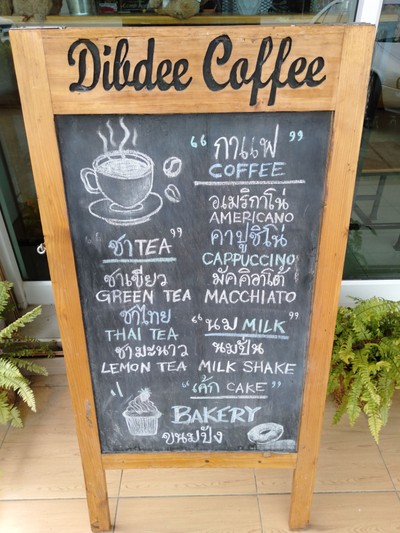 Dibdee Coffee
“ กาแฟ ”
COFFEE
อเมริกาโน
AMERICANO
คาปูชิโน่
CAPPUCCINO
มัคคิอาโต้
MACCHIATO
ชา TEA ”
ชาเขียว
GREEN TEA
ชาไทย
THAI TEA
ชามะนาว
LEMON TEA
“ นม MILK ”
นมปั่น
MILK SHAKE
“ เค้ก CAKE ”
BAKERY
ขนมปัง